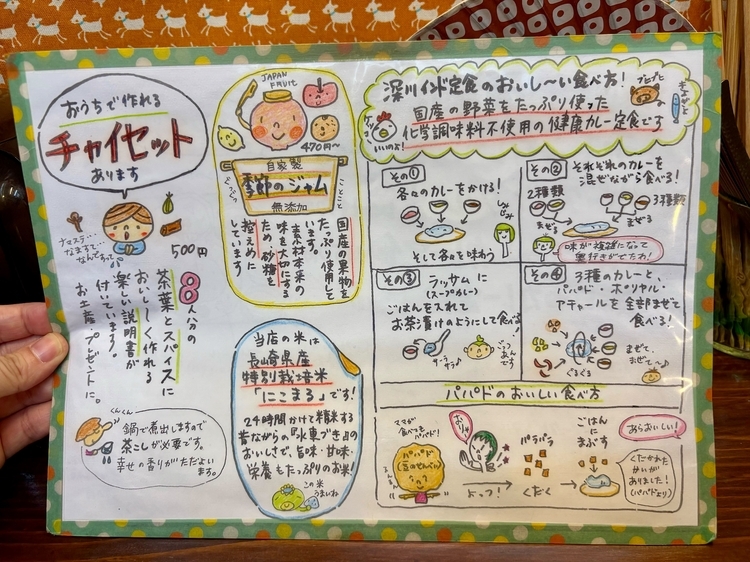 おうちで作れる
チャイセット
あります
ナマステ…
なますて…
なんですって
500円
8人分の
茶葉とスパイスに
おいし〜く作れる
楽しい説明書が
付いています。
お土産・プレゼントに。
くんくん
鍋で煮出しますので
茶こしが必要です。
幸せの香りがただよい
ます。
JAPAN
FRUIT
470円〜
自家製
季節のジャム
無添加
ぐつぐつ
ことこと
国産の果物を
たっぷり使用して
います。
素材本来の
味を大切にする
ため、砂糖を
控えめに
しています。
当店の米は
長崎県産
特別栽培米
「にこまる」です!
24時間かけて精米する
昔ながらの『水車づき』の
おいしさで、旨味・甘味・
栄養もたっぷりのお米!
この米
うまいね
深川インド定食のおいし〜い食べ方!
国産の野菜をたっぷり使った
化学調味料不使用の健康カレー定食です
いいのよ!
その①
各々のカレーをかける!
しみじみ
そして各々を味わう
その②
それぞれのカレーを
混ぜながら食べる!
2種類
3種類
まぜる
まぜる
味が複雑になって
奥行きがでたわ!
その③
ラッサムに
(スープカレー)
ごはんを入れて
お茶漬けのようにして食べる!
サラサラ♪
その④
3種のカレーと、
パパド・ポリヤル・
アチャールを全部まぜて
食べる!
ぐるぐる
まぜて、
まぜて〜♪
パパドのおいしい食べ方
ママが
食べてもパパド!
パパド
(豆のせんべい)
よっ!
くだく
パラパラ
ごはん
に
まぶす
あらおいしい!
くだかれた
かいが
ありました!
(パパドより)